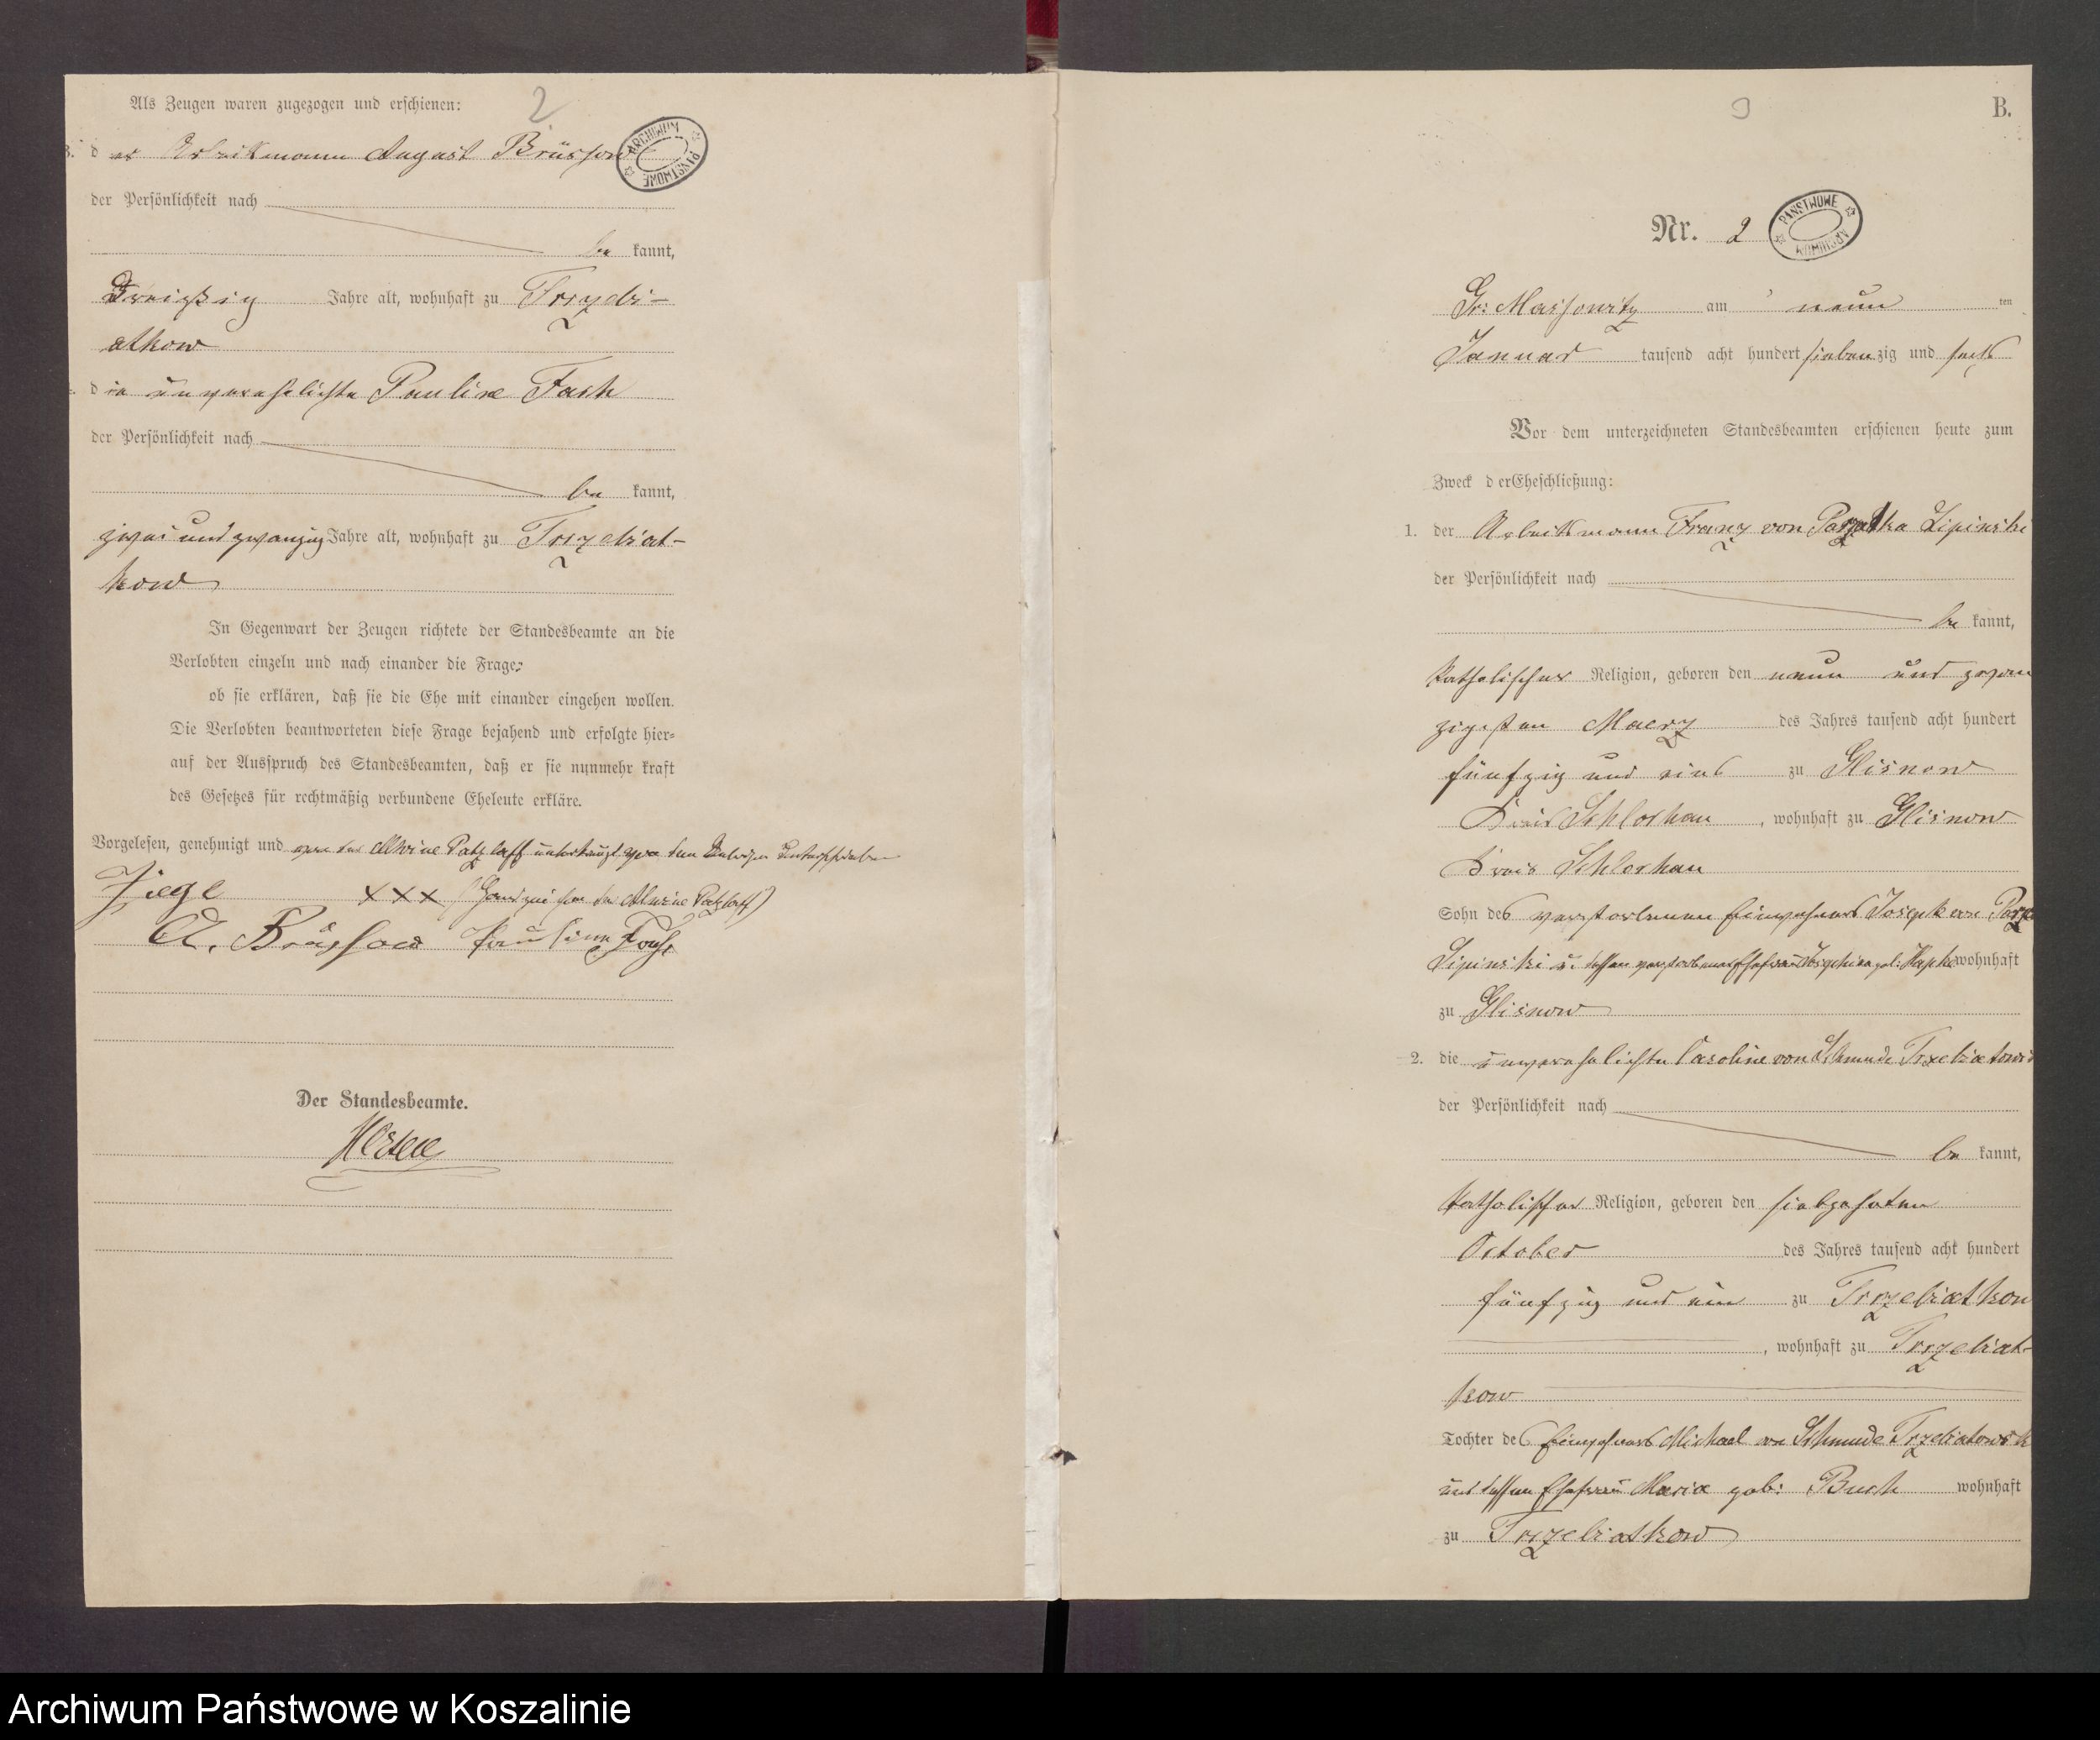 Als Zeugen waren zugezogen und erschienen:
2
3. der Arbeitsmann August Brüssow
ARCHIWUM PAŃSTWOWE
der Persönlichkeit nach
be kannt,
Dreißzig Jahre alt, wohnhaft zu Trzebi-
atkow
4. die unverehelichte Pauline Fash
der Persönlichkeit nach
be kannt,
zwei und zwanzig Jahre alt, wohnhaft zu Trzebiat-
kow
In Gegenwart der Zeugen richtete der Standesbeamte an die
Verlobten einzeln und nach einander die Frage:
ob sie erklären, daß sie die Ehe mit einander eingehen wollen.
Die Verlobten beantworteten diese Frage bejahend und erfolgte hier-
auf der Ausspruch des Standesbeamten, daß er sie nunmehr kraft
des Gesetzes für rechtmäßig verbundene Eheleute erkläre.
Vorgelesen, genehmigt und von der Alwine Patzlaff unterkreuzt von den Uebrigen unterschrieben
Ziege xxx (Handzeichen der Alwine Patzlaff)
A. Brüssow Pauline
Der Standesbeamte.
B.
Nr. 2
PAŃSTWOWE ARCHIWUM
Gr: Massowitz am neun ten
Januar tausend acht hundert siebenzig und sechs
Vor dem unterzeichneten Standesbeamten erschienen heute zum
Zweck der Eheschließung:
1. der Arbeitsmann Franz von Lipinski
der Persönlichkeit nach
be kannt,
katholischer Religion, geboren den neun und zwan
zigsten Maerz des Jahres tausend acht hundert
fünfzig und eins zu Glisnow
Kreis Schlochau, wohnhaft zu Glisnow
Kreis Schlochau
Sohn des verstorbenen Einwohners Joseph von
Lipinski u. dessen verstorbenen Ehefrau geb: wohnhaft
zu Glisnow
2. die unverehelichte Caroline von Schmude Trzebiatowsk
der Persönlichkeit nach
be kannt,
katholischer Religion, geboren den siebzehnten
October des Jahres tausend acht hundert
fünfzig und ein zu Trzebiatkow
, wohnhaft zu Trzebiat-
kow
Tochter des Einwohners Michael von Schmude Trzebiatowsk
und dessen Ehefrau Maria geb: Bush wohnhaft
zu Trzebiatkow
Archiwum Państwowe w Koszalinie